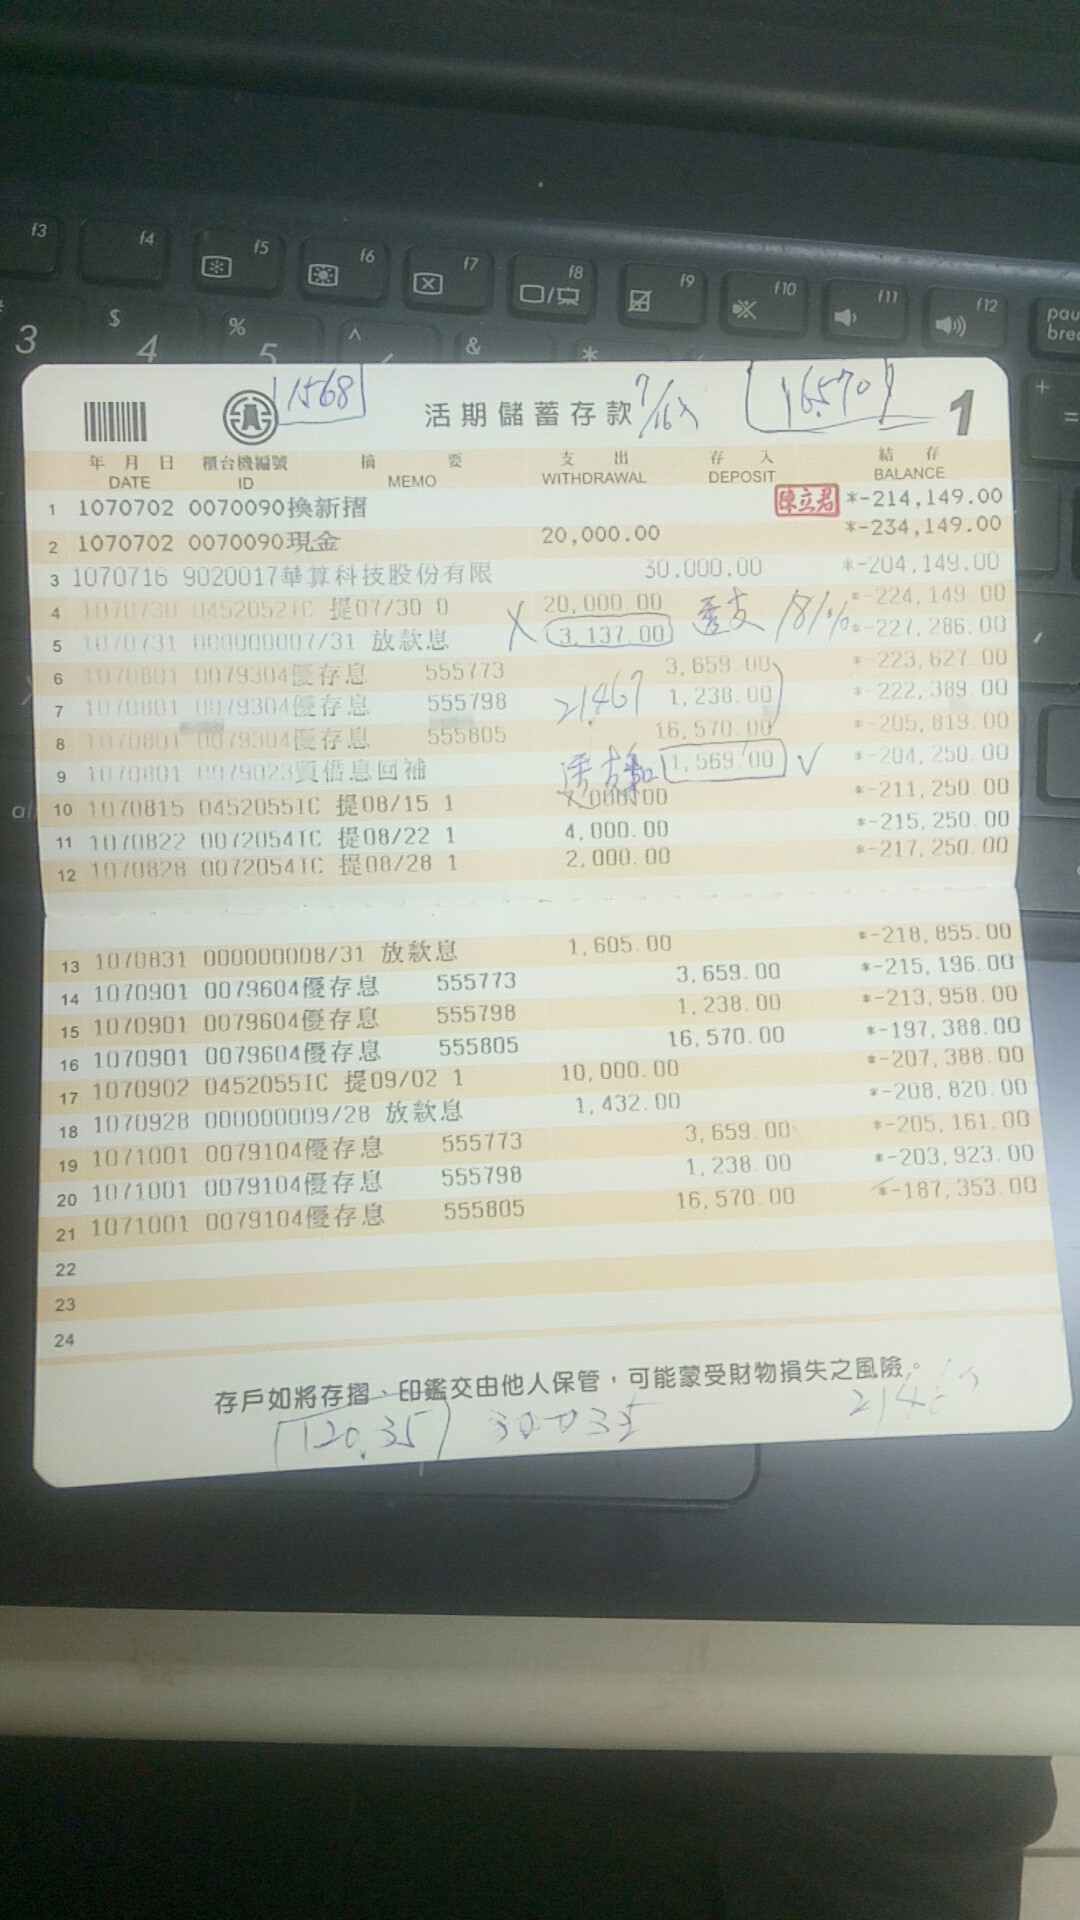 f3 f4 f5 f6 f7 f8 f9 f10 f11 f12 pau
brea
3 $ 4 % 5 ^ & *
1568 活期儲蓄存款 7/16入 16,570 1
年 月 日 櫃台機編號 摘 要 支 出 存 入 結 存
DATE ID MEMO WITHDRAWAL DEPOSIT BALANCE
1 1070702 0070090換新摺 陳立君 *-214,149.00
2 1070702 0070090現金 20,000.00 *-234,149.00
3 1070716 9020017華算科技股份有限 30,000.00 *-204,149.00
4 1070730 0452052IC 提07/30 0 20,000.00 *-224,149.00
5 1070731 000000007/31 放款息 X 3,137.00 透支 *-227,286.00
6 1070801 0079304優存息 555773 3,659.00 *-223,627.00
7 1070801 0079304優存息 555798 21,467 1,238.00 *-222,389.00
8 1070801 0079304優存息 555805 16,570.00 *-205,819.00
9 1070801 0079023質借息回補 1,569.00 ✓ *-204,250.00
10 1070815 0452055IC 提08/15 1 7,000.00 *-211,250.00
11 1070822 0072054IC 提08/22 1 4,000.00 *-215,250.00
12 1070828 0072054IC 提08/28 1 2,000.00 *-217,250.00
13 1070831 000000008/31 放款息 1,605.00 *-218,855.00
14 1070901 0079604優存息 555773 3,659.00 *-215,196.00
15 1070901 0079604優存息 555798 1,238.00 *-213,958.00
16 1070901 0079604優存息 555805 16,570.00 *-197,388.00
17 1070902 0452055IC 提09/02 1 10,000.00 *-207,388.00
18 1070928 000000009/28 放款息 1,432.00 *-208,820.00
19 1071001 0079104優存息 555773 3,659.00 *-205,161.00
20 1071001 0079104優存息 555798 1,238.00 *-203,923.00
21 1071001 0079104優存息 555805 16,570.00 *-187,353.00
22
23
24
存戶如將存摺、印鑑交由他人保管，可能蒙受財物損失之風險。
120.35 30035